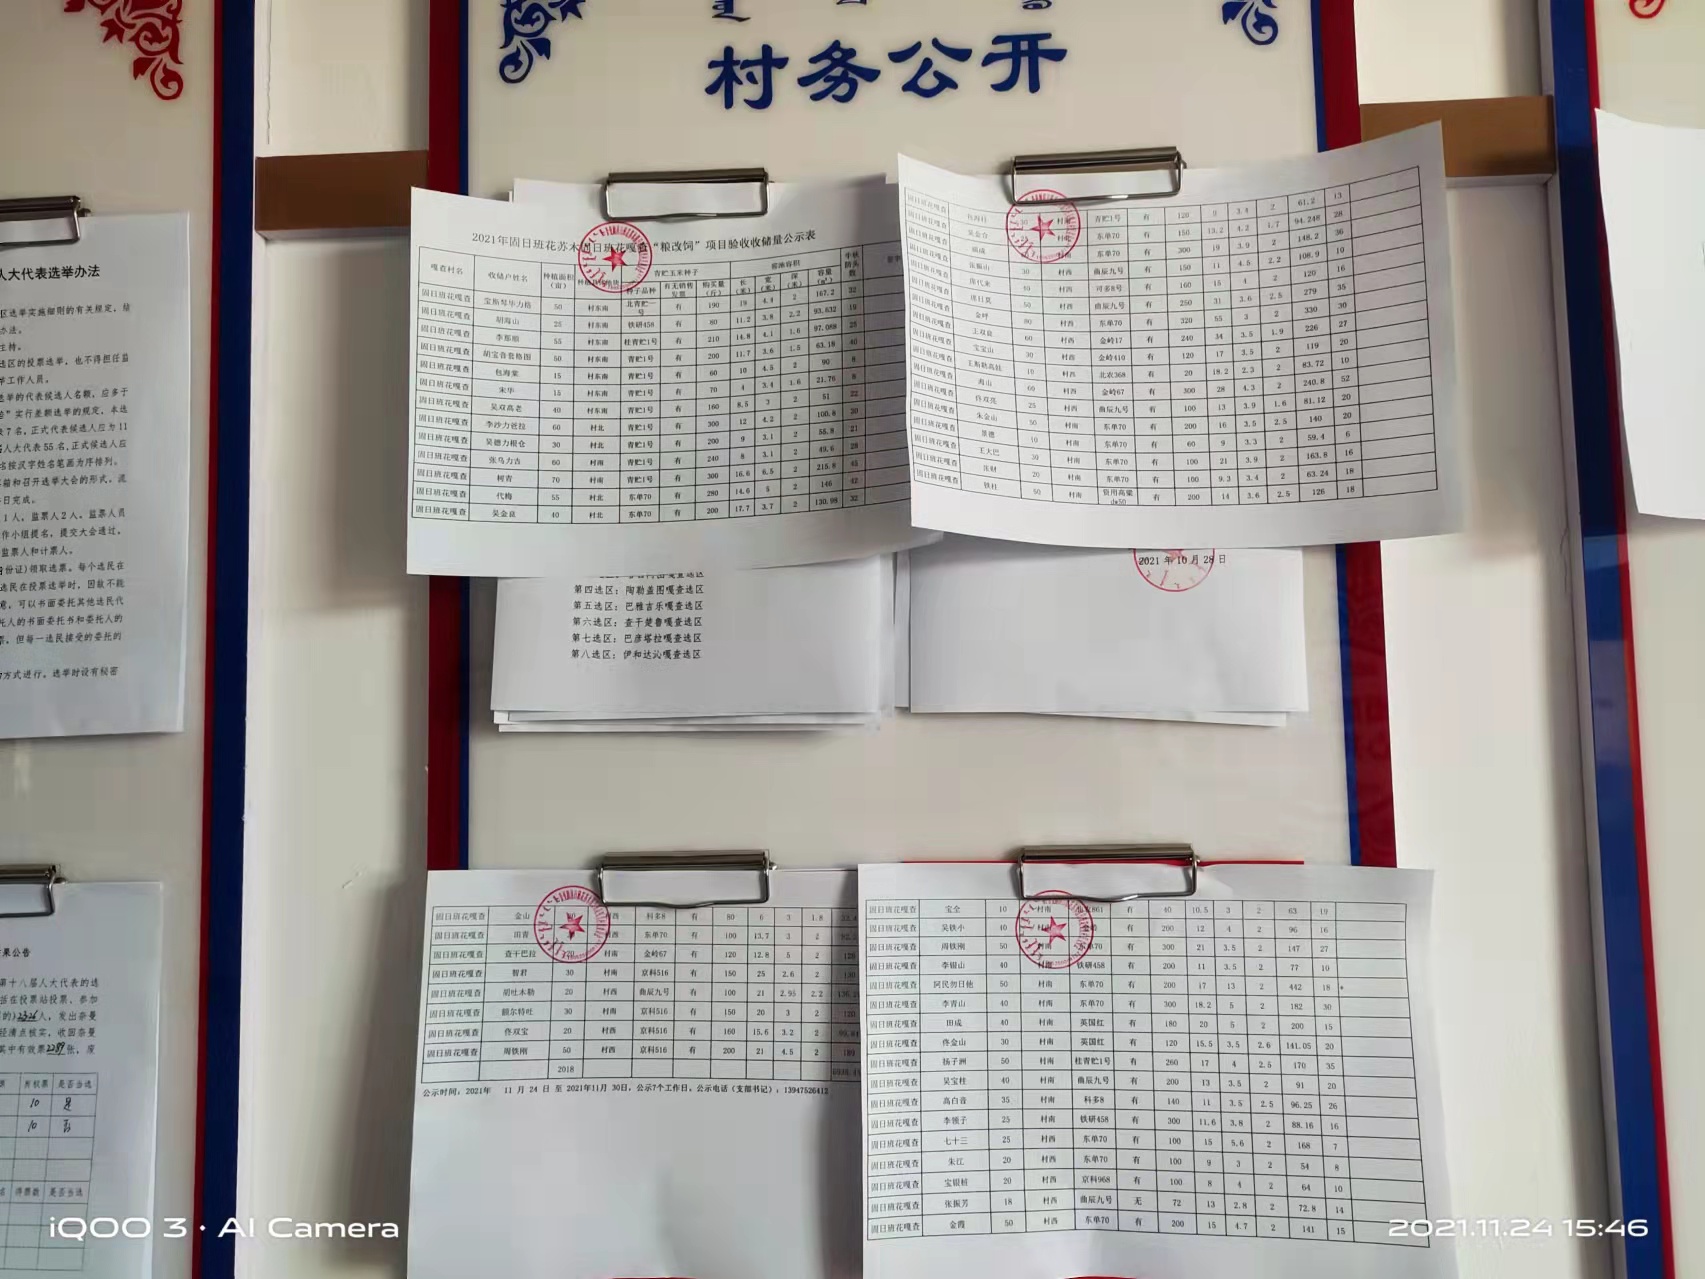 村务公开
人大代表选举办法
区选举实施细则的有关规定，结
办法。
主持。
选区的投票选举，也不得担任监
单工作人员。
选举的代表候选人名额，应多于
实行差额选举的规定，本选
7名，正式代表候选人应为11
届人大代表55名，正式候选人应
名按汉字姓名笔画为序排列。
箱和召开选举大会的形式，流
日完成。
1人，监票人2人，监票人员
作小组提名，提交大会通过，
监票人和计票人。
份证)领取选票。每个选民在
选民在投票选举时，因故不能
意，可以书面委托其他选民代
托人的书面委托书和委托人的
票，但每一选民接受的委托的
方式进行，选举时设有秘密
2021年固日班花苏木固日班花嘎查“粮改饲”项目验收收储量公示表
嘎查村名 收储户姓名 种植面积(亩) 青贮玉米种子 窖池容积
种子品种 有无销售发票 购买量(斤) 长(米) 宽(米) 深(米) 容量(m³)
固日班花嘎查 50 村东南 北青贮一号 有 190 19 4.4 2 167.2 32
固日班花嘎查 胡海山 25 村东南 铁研458 有 80 11.2 3.8 2.2 93.632 19
固日班花嘎查 李那顺 55 村东南 桂青贮1号 有 210 14.8 4.1 1.6 97.088 25
固日班花嘎查 胡宝音套格图 50 村东南 青贮1号 有 200 11.7 3.6 1.5 63.18 40
固日班花嘎查 包海棠 15 村东南 青贮1号 有 60 10 4.5 2 90 8
固日班花嘎查 朱华 15 村东南 青贮1号 有 70 4 3.4 1.6 21.76
固日班花嘎查 吴双高老 40 村东南 青贮1号 有 160 8.5 3 2 51 22
固日班花嘎查 李沙力爸拉 60 村北 青贮1号 有 300 12 4.2 2 100.8 20
固日班花嘎查 吴德力根仓 30 村北 青贮1号 有 200 9 3.1 2 55.8 21
固日班花嘎查 张乌力吉 60 村南 青贮1号 有 240 8 3.1 2 49.6 28
固日班花嘎查 柯青 70 村南 青贮1号 有 300 16.6 6.5 2 215.8 45
固日班花嘎查 代梅 55 村北 东单70 有 280 14.6 5 2 146 42
固日班花嘎查 吴金良 40 村北 东单70 有 200 17.7 3.7 2 130.98 32
固日班花嘎查 青贮1号 有 120 9 3.4 2 61.2 13
固日班花嘎查 吴金仓 东单70 有 150 13.2 4.2 1.7 94.248 28
固日班花嘎查 东单70 有 300 19 3.9 2 148.2 36
固日班花嘎查 张振山 30 村西 曲辰九号 有 150 11 4.5 2.2 108.9 10
固日班花嘎查 席代来 40 村西 可多8号 有 160 15 4 2 120 16
固日班花嘎查 50 村西 曲辰九号 有 250 31 3.6 2.5 279 35
固日班花嘎查 金呼 80 村西 东单70 有 320 55 3 2 330 30
固日班花嘎查 王双良 60 村西 金岭17 有 240 34 3.5 1.9 226 27
固日班花嘎查 宝宝山 30 村西 金岭410 有 120 17 3.5 2 119 20
固日班花嘎查 王斯勒高娃 10 村西 北农368 有 20 18.2 2.3 2 83.72 10
固日班花嘎查 海山 60 村西 金岭67 有 300 28 4.3 2 240.8 52
固日班花嘎查 佟双亮 25 村西 曲辰九号 有 100 13 3.9 1.6 81.12 20
固日班花嘎查 朱金山 50 村南 东单70 有 200 16 3.5 2.5 140 20
固日班花嘎查 10 村南 东单70 有 60 9 3.3 2 59.4 6
固日班花嘎查 王大巴 30 村南 东单70 有 100 21 3.9 2 163.8 16
固日班花嘎查 张财 20 村南 东单70 有 100 9.3 3.4 2 63.24 18
固日班花嘎查 铁柱 50 村南 有 200 14 3.6 2.5 126 18
第四选区：陶勒盖图嘎查选区
第五选区：巴雅吉乐嘎查选区
第六选区：查干楚鲁嘎查选区
第七选区：巴彦塔拉嘎查选区
第八选区：伊和达沁嘎查选区
2021年10月28日
果公告
第十八届人大代表的选
括在投票站投票、参加
的)2326人，发出奈曼
经清点核实，收回奈曼
其中有效票2289张，废
票 所权票 是否当选
10 是
10 否
名 得票数 是否当选
固日班花嘎查 金山 村西 科多8 有 80 6 3 1.8
固日班花嘎查 田青 村西 东单70 有 100 13.7 3 2
固日班花嘎查 查干巴拉 村南 金岭67 有 120 12.8 5 2 128
固日班花嘎查 智君 30 村南 京科516 有 150 25 2.6 2 130
固日班花嘎查 胡吐木勒 20 村西 曲辰九号 有 100 21 2.95 2.2
固日班花嘎查 额尔特吐 30 村南 京科516 有 150 20 3 2 120
固日班花嘎查 佟双宝 20 村西 京科516 有 160 15.6 3.2 2
固日班花嘎查 周铁刚 50 村西 京科516 有 200 21 4.5 2 189
2018
公示时间：2021年 11月24日至2021年11月30日，公示7个工作日，公示电话（支部书记）：13947526413
固日班花嘎查 宝全 10 村南 有 40 10.5 3 2 63 19
固日班花嘎查 吴铁小 40 有 200 12 4 2 96 16
固日班花嘎查 周铁刚 50 村南 东单70 有 300 21 3.5 2 147 27
固日班花嘎查 李银山 40 村南 铁研458 有 200 11 3.5 2 77 10
固日班花嘎查 阿民勿日他 50 村南 东单70 有 200 17 13 2 442 18
固日班花嘎查 李青山 40 村南 东单70 有 300 18.2 5 2 182 30
固日班花嘎查 田成 40 村南 英国红 有 180 20 5 2 200 15
固日班花嘎查 佟金山 30 村南 英国红 有 120 15.5 3.5 2.6 141.05 20
固日班花嘎查 扬子洲 50 村南 桂青贮1号 有 260 17 4 2.5 170 35
固日班花嘎查 吴宝柱 40 村南 曲辰九号 有 200 13 3.5 2 91 20
固日班花嘎查 高白音 35 村南 科多8 有 140 11 3.5 2.5 96.25 26
固日班花嘎查 李领子 25 村南 铁研458 有 300 11.6 3.8 2 88.16 16
固日班花嘎查 七十三 25 村西 东单70 有 100 15 5.6 2 168 7
固日班花嘎查 朱江 20 村西 东单70 有 100 9 3 2 54 8
固日班花嘎查 宝银桩 20 村西 京科968 有 100 8 4 2 64 10
固日班花嘎查 张振芳 18 村西 曲辰九号 无 72 13 2.8 2 72.8 14
固日班花嘎查 金霞 50 村西 东单70 有 200 15 4.7 2 141 15
iQOO 3 · AI Camera
2021.11.24 15:46